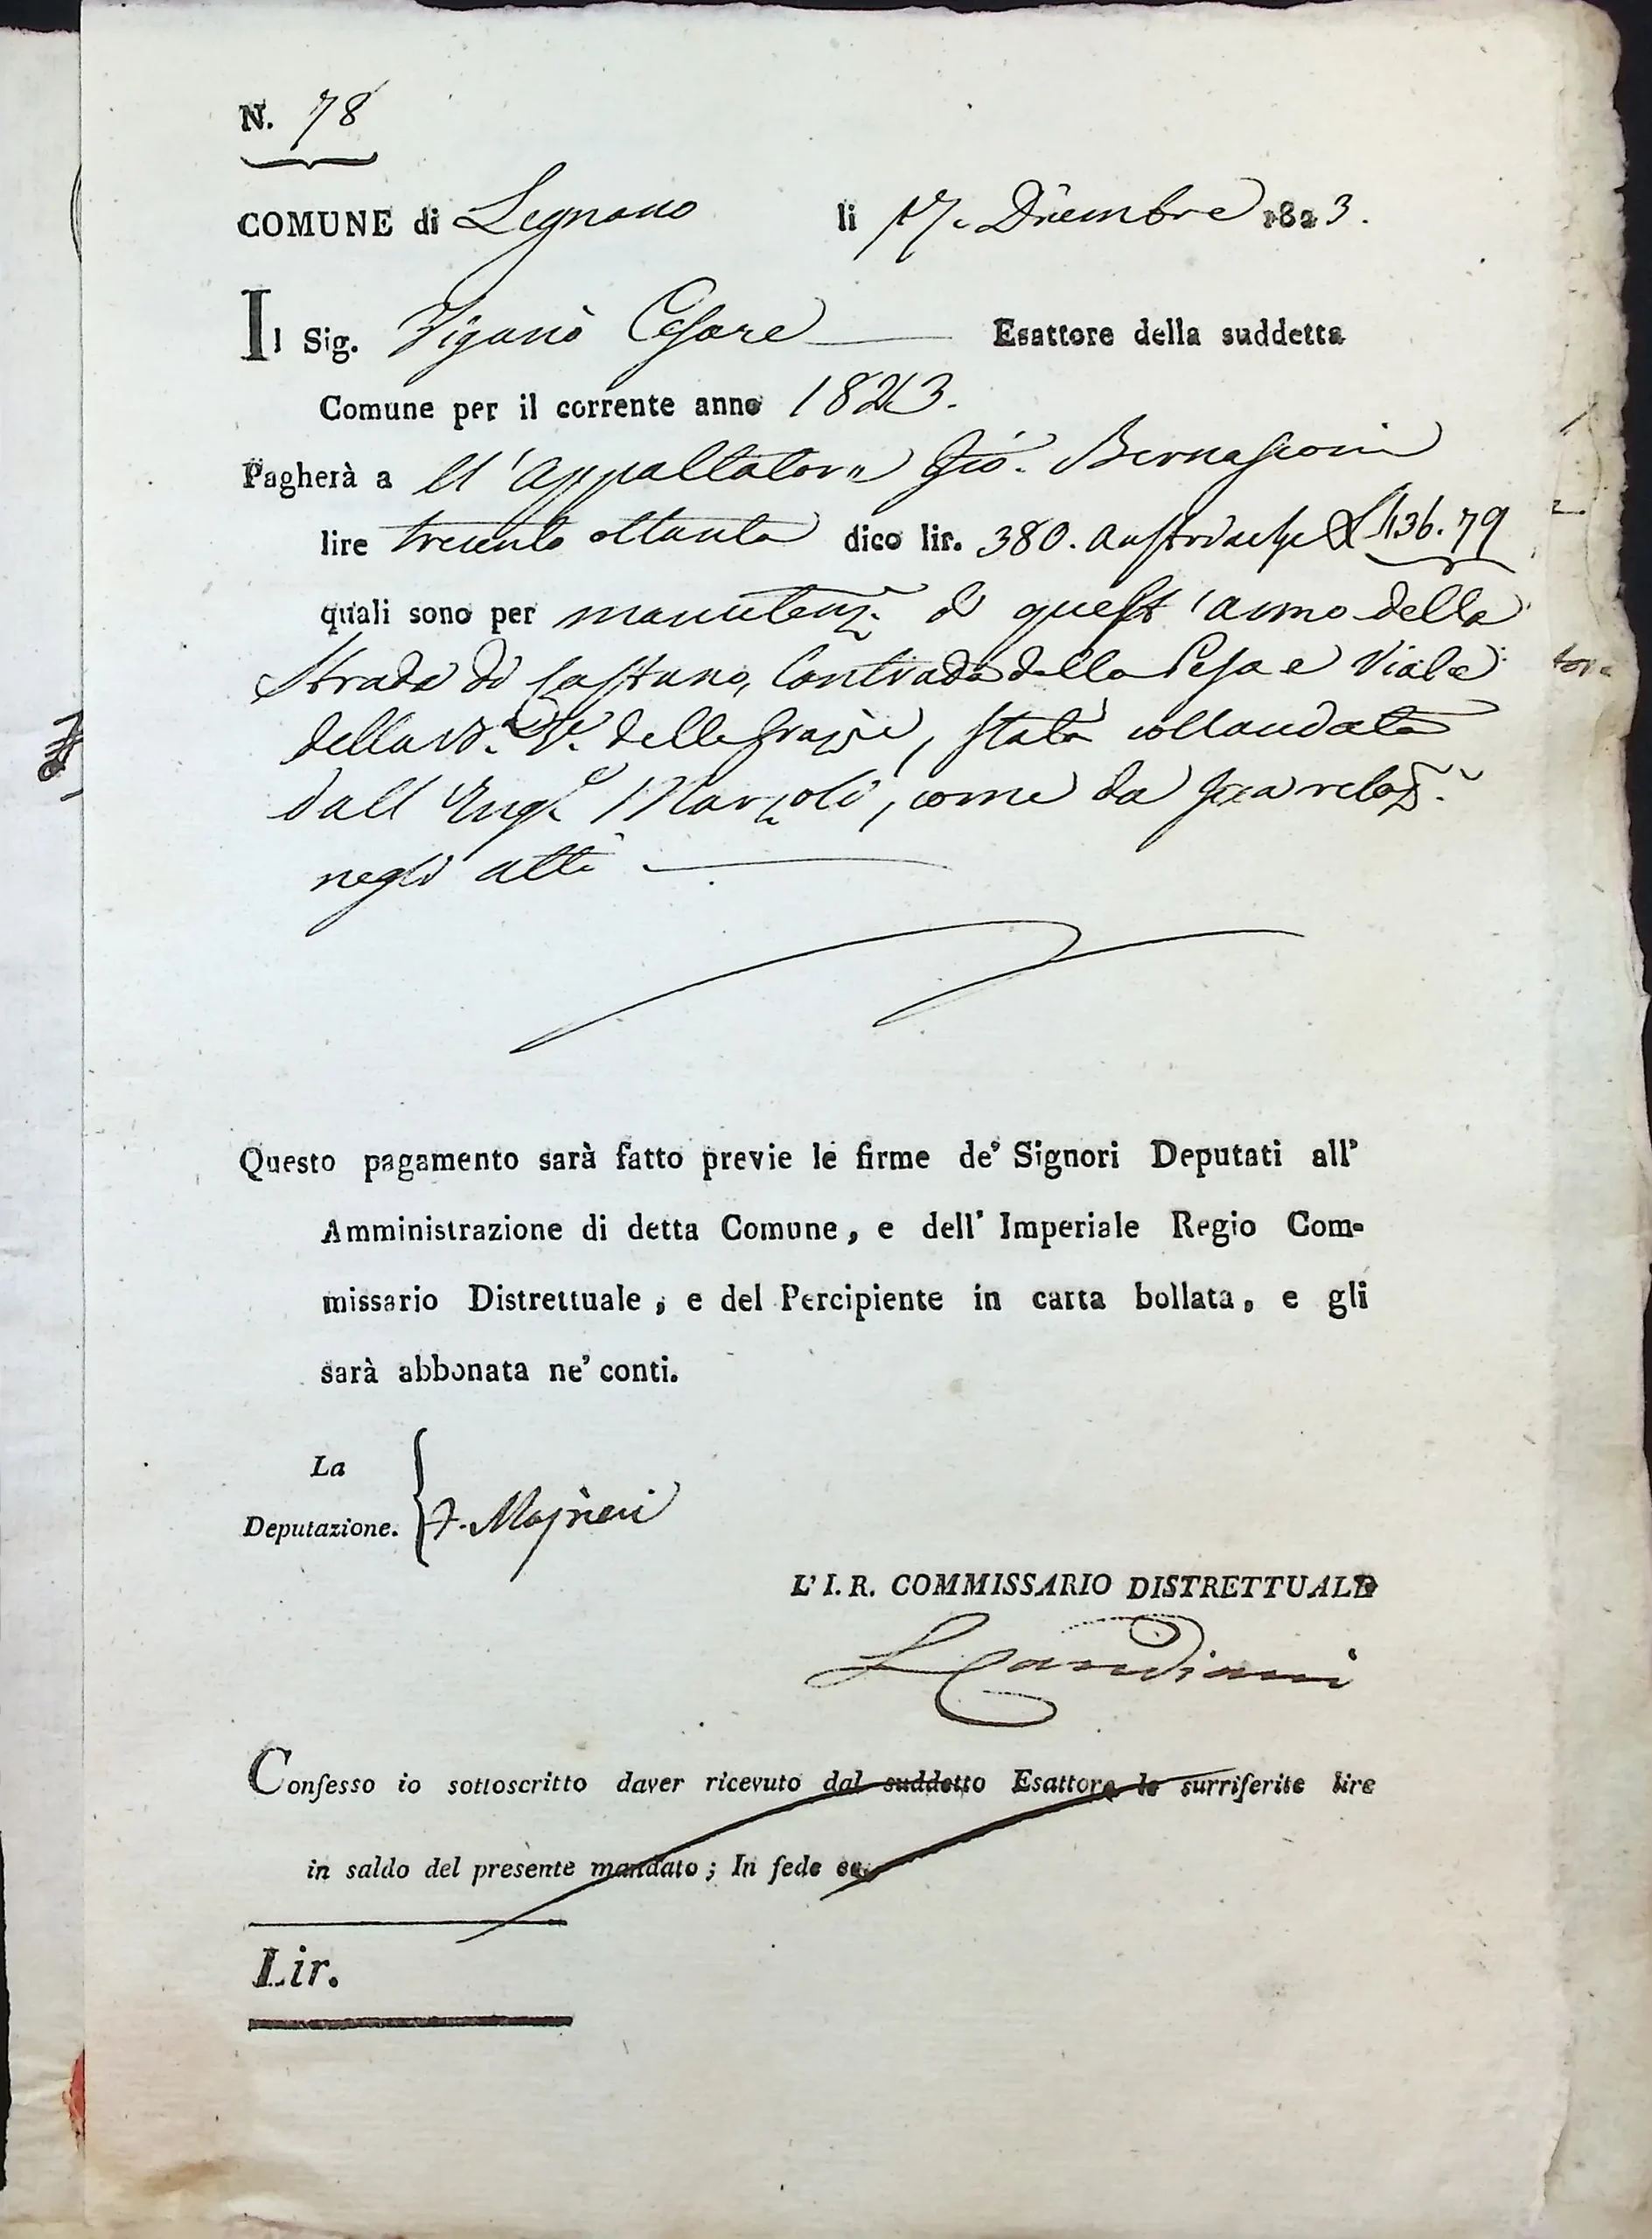 N. 78
COMUNE di Legnano li 17. Dicembre 1823.
Il Sig. Viganò Cesare Esattore della suddetta
Comune per il corrente anno 1823.
Pagherà a ll'appaltatore Gio. Bernasconi
lire trecento ottanta dico lir. 380. austriache £ 436. 79
quali sono per manutenz. di quest'anno della
Strada di Castano, Contrada della Pesa e Viale
della B. V. delle Grazie, stata collaudata
dall'Ing. Marzoli, come da sua relaz.
negli atti
Questo pagamento sarà fatto previe le firme de' Signori Deputati all'
Amministrazione di detta Comune, e dell' Imperiale Regio Com-
missario Distrettuale, e del Percipiente in carta bollata, e gli
sarà abbonata ne' conti.
La
Deputazione.
L' I. R. COMMISSARIO DISTRETTUALE
L Candiani
Confesso io sottoscritto daver ricevuto dal suddetto Esattore le surriferite lire
in saldo del presente mandato; In fede ec.
Lir.